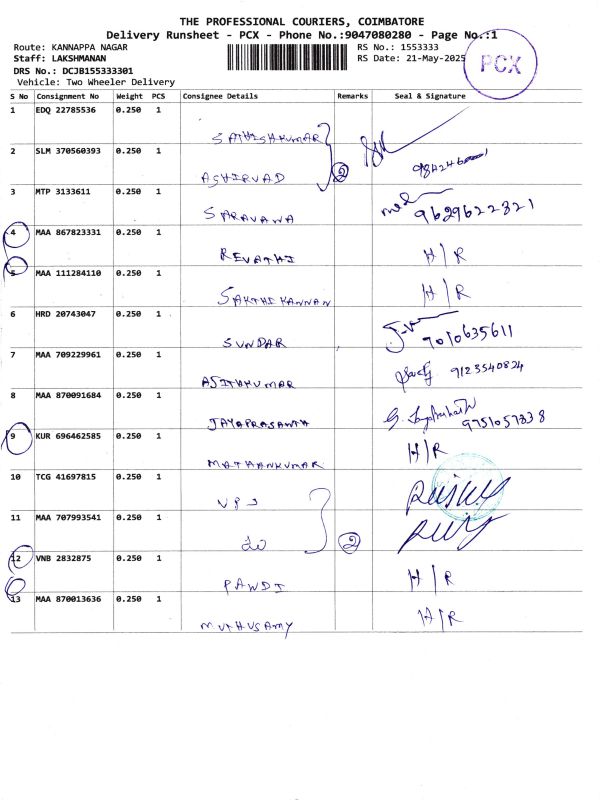 THE PROFESSIONAL COURIERS, COIMBATORE
Delivery Runsheet - PCX - Phone No.:9047080280 - Page No.:1
Route: KANNAPPA NAGAR RS No.: 1553333
Staff: LAKSHMANAN RS Date: 21-May-2025
DRS No.: DCJB155333301
PCX
Vehicle: Two Wheeler Delivery
S No Consignment No Weight PCS Consignee Details Remarks Seal & Signature
1 EDQ 22785536 0.250 1
SATHISHKUMAR
2 SLM 370560393 0.250 1
ASHIRVAD 2
3 MTP 3133611 0.250 1
SARAVANA 9629622821
4 MAA 867823331 0.250 1
REVATHI H/R
5 MAA 111284110 0.250 1
SAKTHIKANNAN H/R
6 HRD 20743047 0.250 1
SUNDAR 7010635611
7 MAA 709229961 0.250 1
AJITHKUMAR 9123540824
8 MAA 870091684 0.250 1
JAYAPRASANTH 9751057338
9 KUR 696462585 0.250 1
MATHANKUMAR H/R
10 TCG 41697815 0.250 1
UPS
11 MAA 707993541 0.250 1
do 2
12 VNB 2832875 0.250 1
PAWDI H/R
13 MAA 870013636 0.250 1
MUTHUSAMY H/R